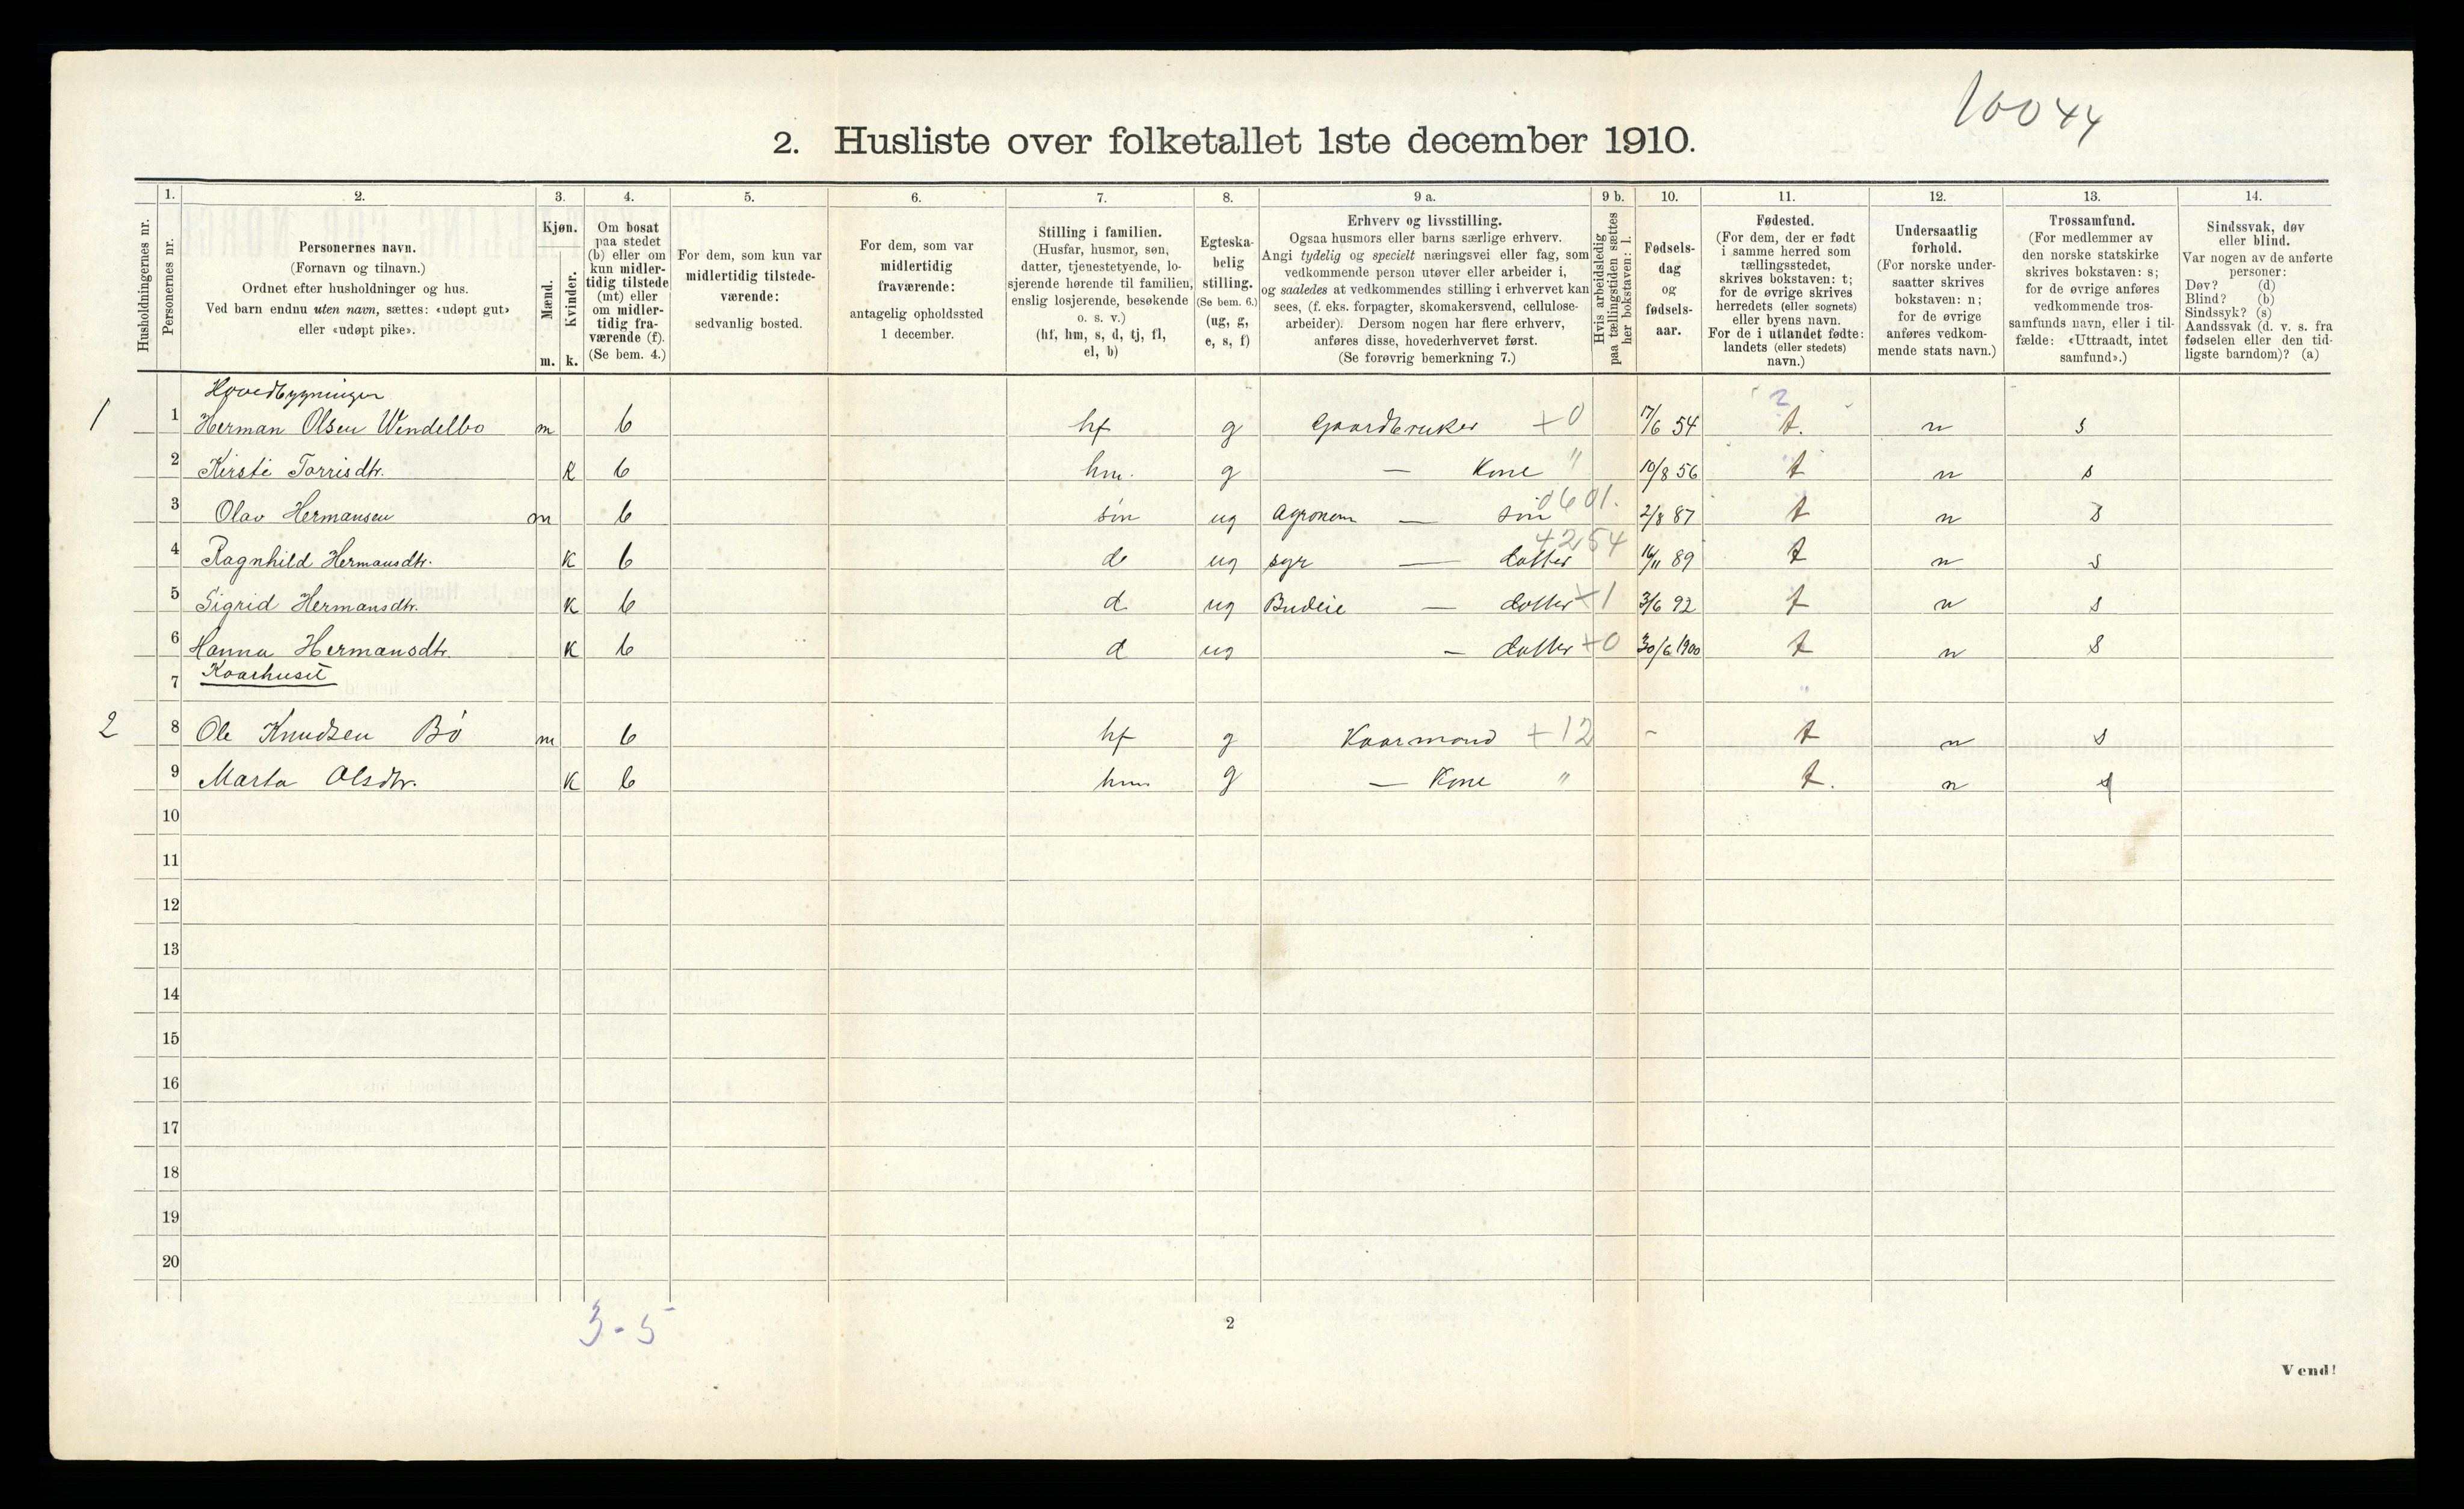 10044
2. Husliste over folketallet 1ste december 1910.
Husholdningernes nr.
1.
Personernes nr.
2.
Personernes navn.
(Fornavn og tilnavn.)
Ordnet efter husholdninger og hus.
Ved barn endnu uten navn, sættes: «udøpt gut»
eller «udøpt pike».
3.
Kjøn.
Mænd.
Kvinder.
m. k.
4.
Om bosat
paa stedet
(b) eller om
kun midler-
tidig tilstede
(mt) eller
om midler-
tidig fra-
værende (f).
(Se bem. 4.)
5.
For dem, som kun var
midlertidig tilstede-
værende:
sedvanlig bosted.
6.
For dem, som var
midlertidig
fraværende:
antagelig opholdssted
1 december.
7.
Stilling i familien.
(Husfar, husmor, søn,
datter, tjenestetyende, lo-
sjerende hørende til familien,
enslig losjerende, besøkende
o. s. v.)
(hf, hm, s, d, tj, fl,
el, b)
8.
Egteska-
belig
stilling.
(Se bem. 6.)
(ug, g,
e, s, f)
9 a.
Erhverv og livsstilling.
Ogsaa husmors eller barns særlige erhverv.
Angi tydelig og specielt næringsvei eller fag, som
vedkommende person utøver eller arbeider i,
og saaledes at vedkommendes stilling i erhvervet kan
sees, (f. eks. forpagter, skomakersvend, cellulose-
arbeider). Dersom nogen har flere erhverv,
anføres disse, hovederhvervet først.
(Se forøvrig bemerkning 7.)
9 b.
Hvis arbeidsledig
paa tællingstiden sættes
her bokstaven: l.
10.
Fødsels-
dag
og
fødsels-
aar.
11.
Fødested.
(For dem, der er født
i samme herred som
tællingsstedet,
skrives bokstaven: t;
for de øvrige skrives
herredets (eller sognets)
eller byens navn.
For de i utlandet fødte:
landets (eller stedets)
navn.)
12.
Undersaatlig
forhold.
(For norske under-
saatter skrives
bokstaven: n;
for de øvrige
anføres vedkom-
mende stats navn.)
13.
Trossamfund.
(For medlemmer av
den norske statskirke
skrives bokstaven: s;
for de øvrige anføres
vedkommende tros-
samfunds navn, eller i til-
fælde: «Uttraadt, intet
samfund».)
14.
Sindssvak, døv
eller blind.
Var nogen av de anførte
personer:
Døv? (d)
Blind? (b)
Sindssyk? (s)
Aandssvak (d. v. s. fra
fødselen eller den tid-
ligste barndom)? (a)
Hovedbygningen
1 1 Herman Olsen Wendelbo m b hf g Gaardbruker +0 17/6 54 2 t. n s
2 Kirsti Torrisdtr. k b hm. g — Kone " 10/8 56 t n s
3 Olav Hermansen m b søn ug Agronom — søn 0601. 2/8 87 t n s
4 Ragnhild Hermansdtr. k b d ug syr — datter 4254 16/11 89 t n s
5 Sigrid Hermansdtr. k b d ug Budeie — datter +1 3/6 92 t n s
6 Hanna Hermansdtr. k b d ug — datter +0 30/6 1900 t n s
7 Kaarhuset
2 8 Ole Knudsen Bø m b hf g Kaarmand +12 - t n s
9 Marta Olsdtr. k b hm. g — Kone " t. n s
10
11
12
13
14
15
16
17
18
19
20
3-5
2
Vend!